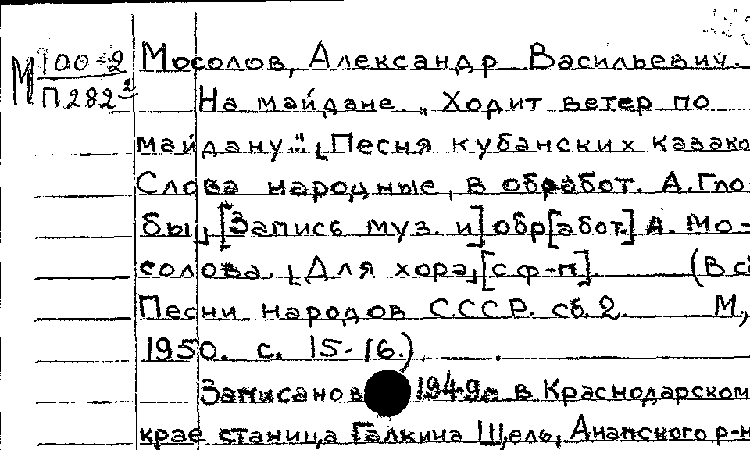 М 100-2 Мосолов, Александр Васильевич.
П 282² На майдане. „Ходит ветер по
майдану..." [Песня кубанских казако
Слова народные, в обработ. А. Гло-
бы], [Запись муз. и] обр[абот.] А. Мо-
солова. [Для хора] [с ф-п]. (В сб
Песни народов СССР. сб. 2. М,
1950. с. 15-16.)
Записано в 1949г. в Краснодарском
крае станица Галкина Щель, Анапского р-н